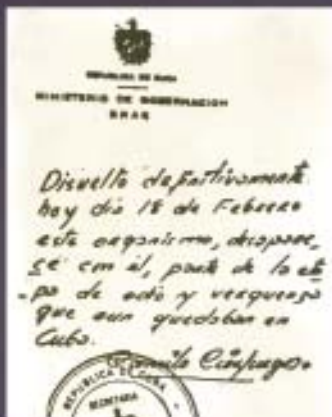 REPUBLICA DE CUBA
MINISTERIO DE GOBERNACION
BRAC
Disuelto definitivamente
hoy día 18 de Febrero
este organismo, desapare-
ce con él, parte de la eta
-pa de odio y verguenza
que aun quedaban en
Cuba.
Camilo Cienfuegos
REPUBLICA DE CUBA
SECRETARIA